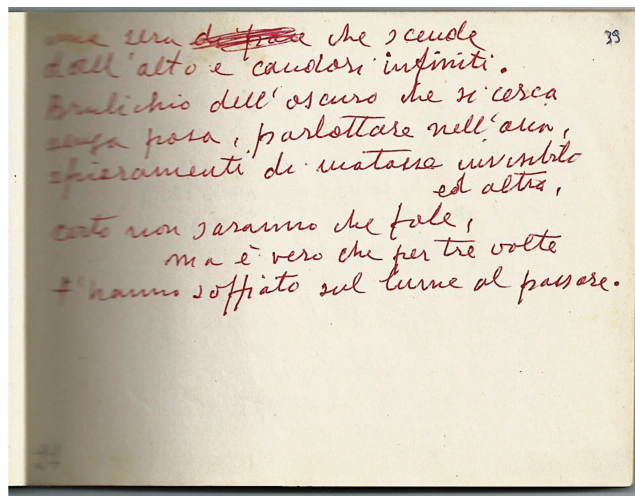 39
una sera che scende
dall'alto e candori infiniti.
Brulichio dell'oscuro che si cerca
senza posa, parlottare nell'aria,
sfioramenti di matasse invisibili
ed altre,
certo non saranno che fole,
ma è vero che per tre volte
t'hanno soffiato sul lume al passare.